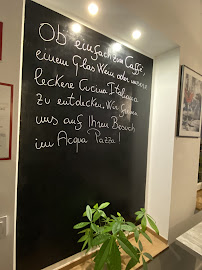 Ob einfach zum Caffè,
einem Glas Wein oder unsere
leckere Cucina Italiana
zu entdecken. Wir freuen
uns auf Ihren Besuch
im Acqua Pazza!